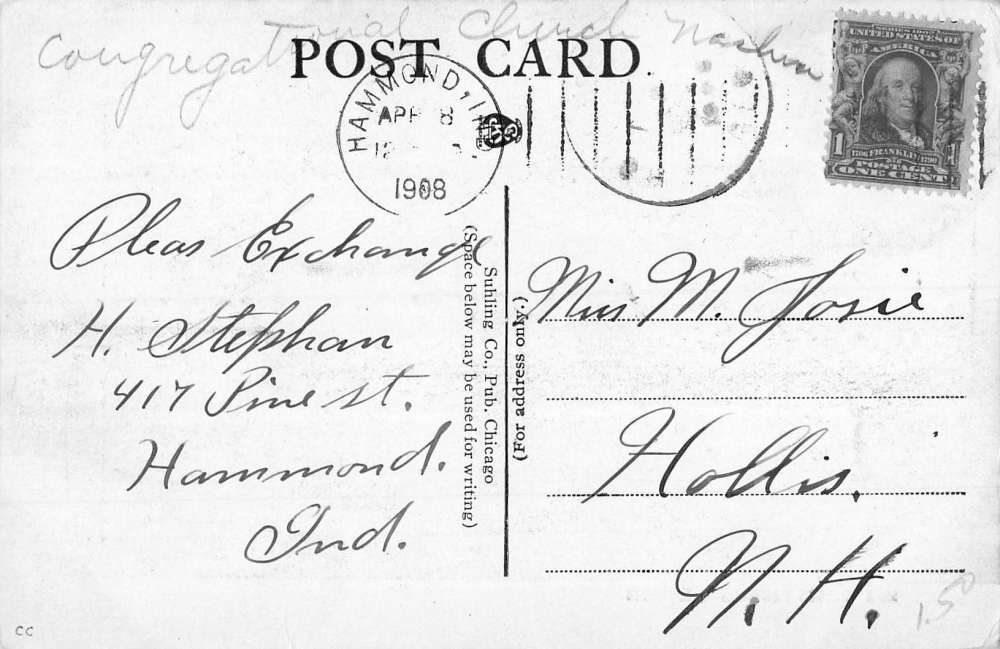 Congregational Church Nashua
POST CARD
HAMMOND, I
APR 8
12
1908
SERIES 1902
UNITED STATES OF
AMERICA
1706 FRANKLIN 1790
POSTAGE
1 1
ONE CENT
Pleas Exchange
H. Stephan
417 Pine st.
Hammond.
Ind.
Suhling Co., Pub. Chicago
(Space below may be used for writing)
(For address only.)
Miss M. Josie
Hollis.
N. H.
1.50
CC